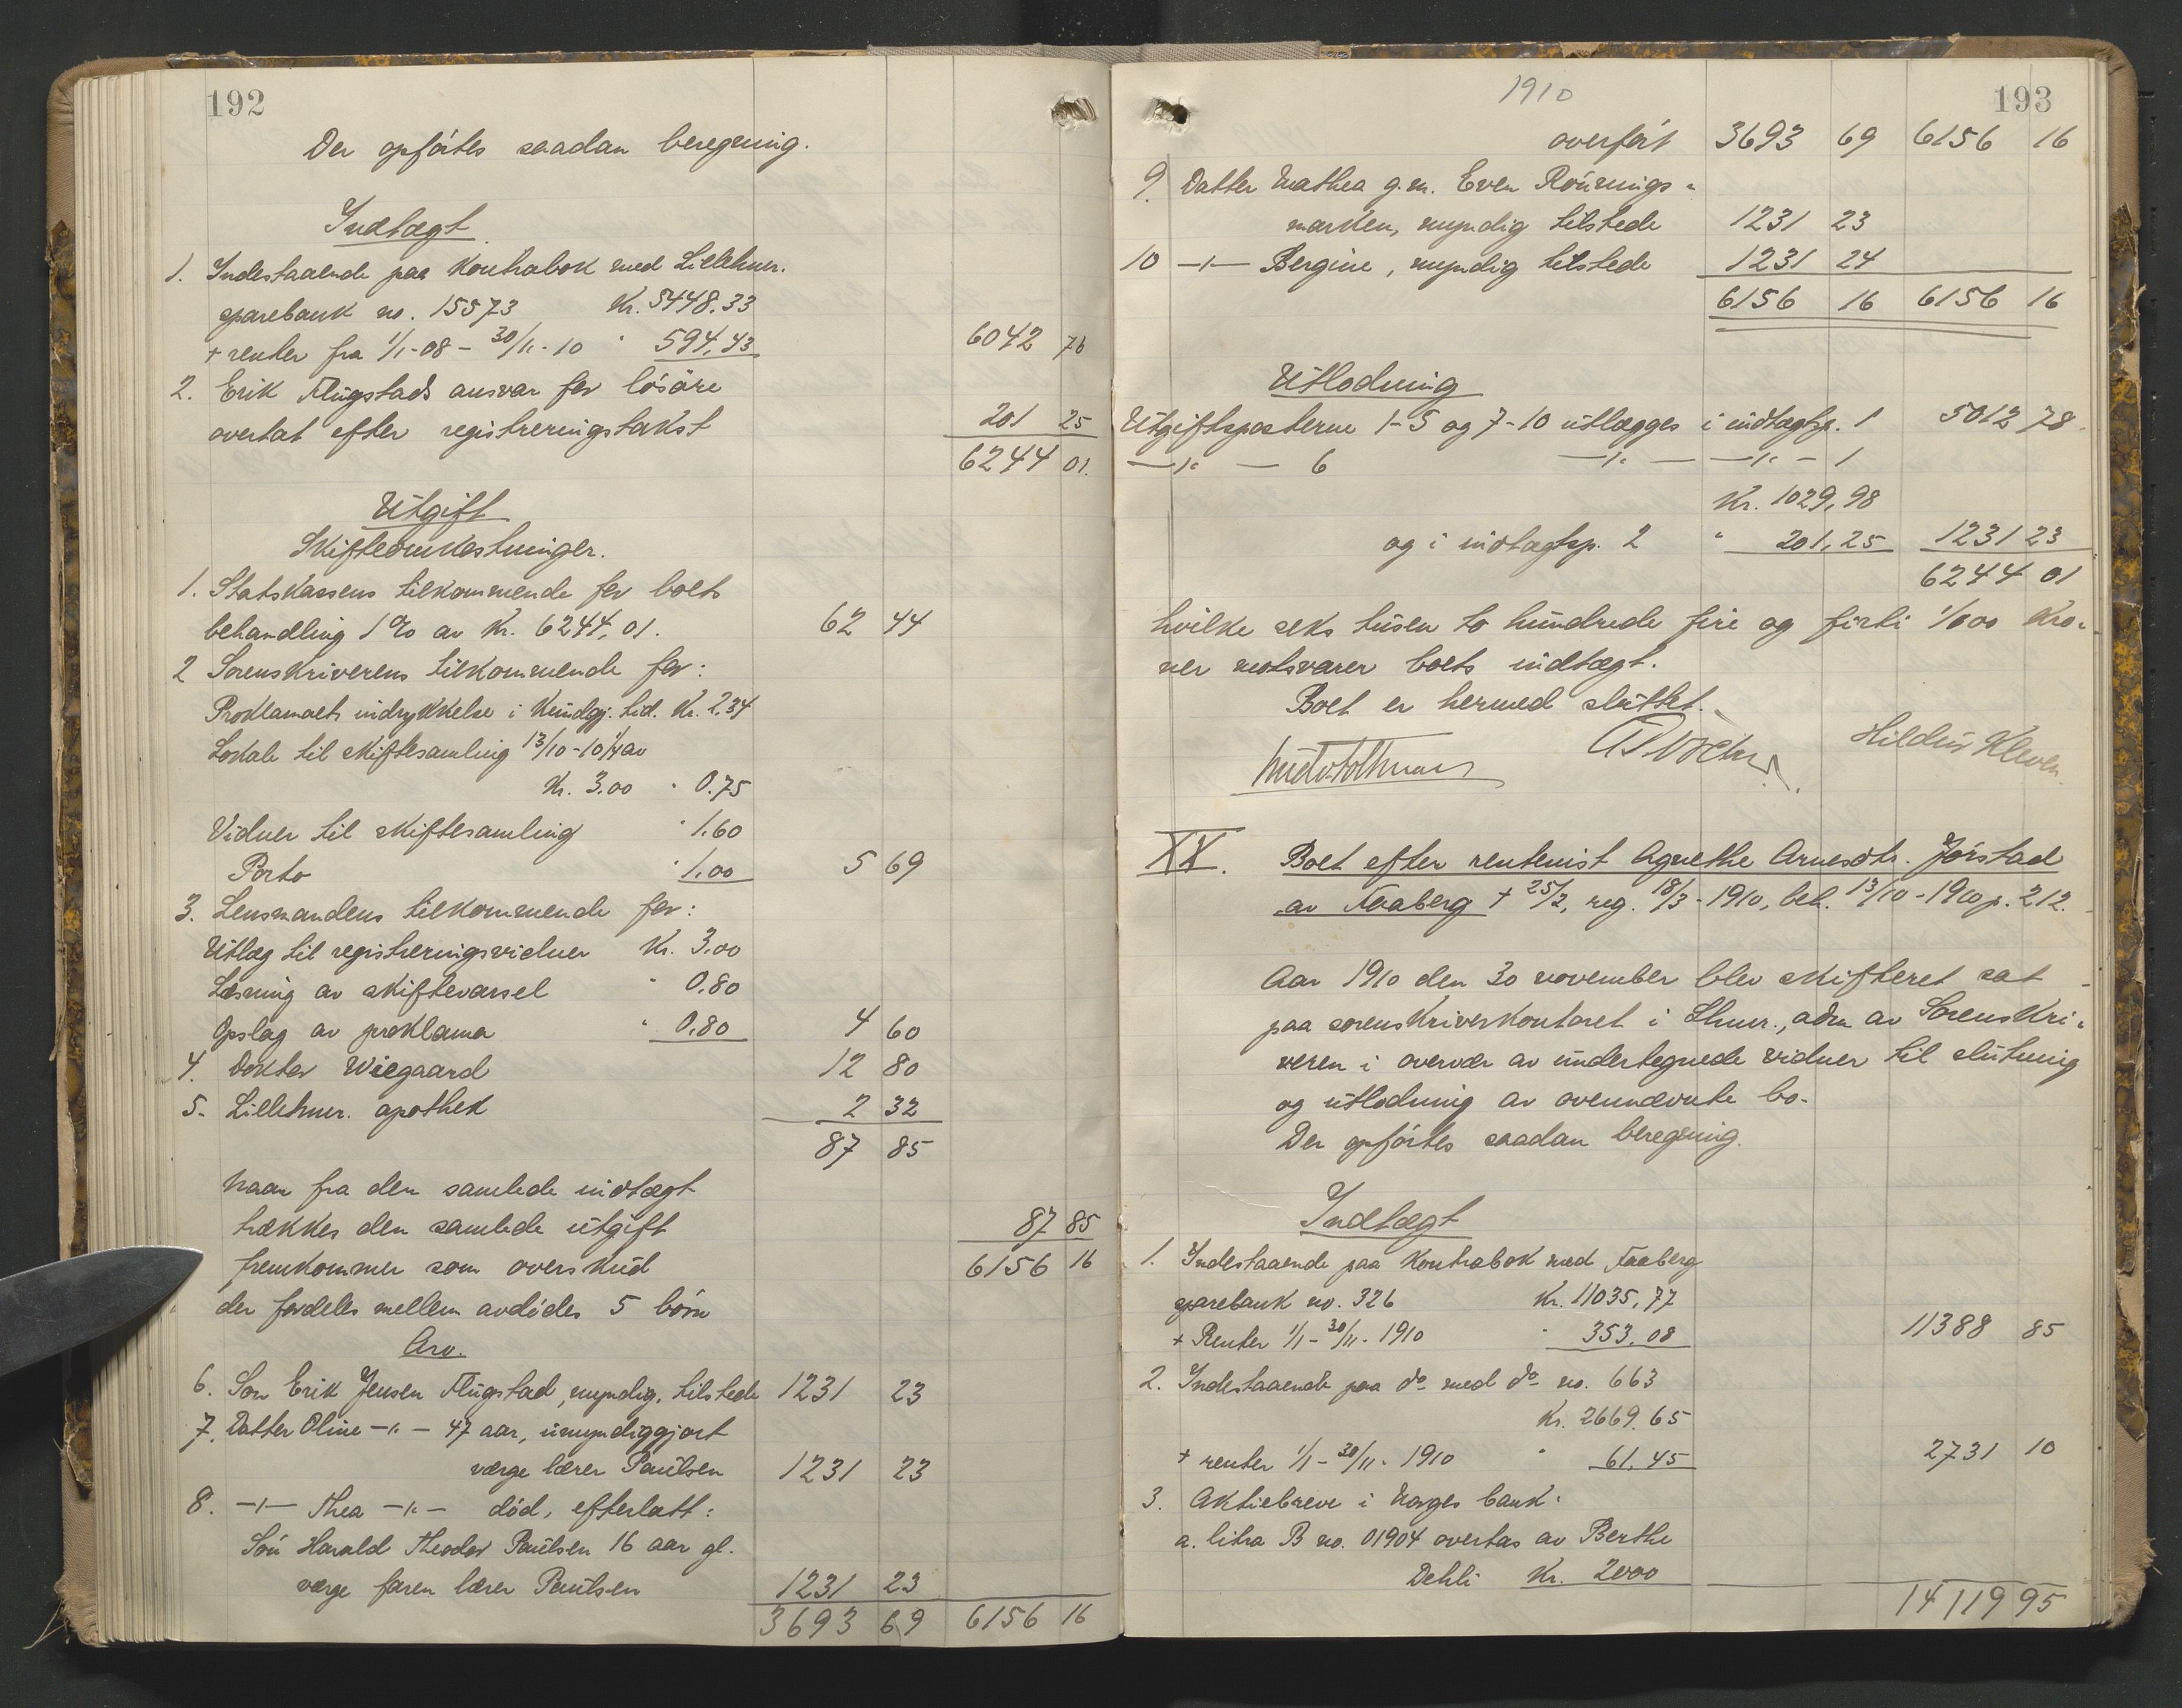 192
Der opførtes saadan beregning.
Indtægt
1. Indestaaende paa Kontrabok med Lillehmr.
sparebank no. 15573 Kr. 5448.33
+ renter fra 1/1-08 - 30/11-10 " 594,43 6042 76
2. Erik Flugstads ansvar for løsøre
overtat efter registreringstakst 201 25
6244 01.
Utgift
Skifteomkostninger.
1. Statskassens tilkommende for boets
behandling 1 % av Kr. 6244,01. 62 44
2 Sorenskriverens tilkommende for:
Proklamaets indrykkelse i Kundgj. tid. Kr. 2,34
Lokale til skiftesamling 13/10-10 1/4 av
Kr. 3.00 " 0.75
Vidner til skiftesamling " 1.60
Porto " 1,00 5 69
3. Lensmandens tilkommende for:
Utlæg til registreringsvidner Kr. 3,00
Læsning av skiftevarsel " 0.80
Opslag av proklama " 0,80 4 60
4. Doktor Wiegaard 12 80
5. Lillehmr. apothek 2 32
87 85
Naar fra den samlede indtægt
trækkes den samlede utgift 87 85
fremkommer som overskud 6156 16
der fordeles mellem avdødes 5 børn
Arv.
6. Søn Erik Jensen Flugstad, myndig, tilstede 1231 23
7. Datter Oline -"- 47 aar, umyndiggjort
værge lærer Paulsen 1231 23
8. -"- Thea -"- død, efterlatt:
Søn Harald Theodor Paulsen 16 aar gl.
værge faren lærer Paulsen 1231 23
3693 69 6156 16
1910
193
overført 3693 69 6156 16
9. Datter Mathea g.m. Even Rønnings-
marken, myndig tilstede 1231 23
10 -"- Bergine, myndig tilstede 1231 24
6156 16 6156 16
Utlodning
Utgiftsposterne 1-5 og 7-10 utlægges i indtægtsp. 1 5012 78
-"- - 6 -"- - -"- - 1
Kr. 1029,98
og i indtægtsp. 2 " 201,25 1231 23
6244 01
hvilke seks tusen to hundrede fire og firti 1/100 Kro-
ner motsvarer boets indtægt.
Boet er hermed sluttet.
Hildur Kleven
XX. Boet efter rentenist Agnethe Arnesdtr. Jørstad
av Faaberg + 25/2, reg. 18/3-1910, beh. 13/10-1910 p. 212.
Aar 1910 den 30 november blev skifteret sat
paa sorenskriverkontoret i Lhmr., adm av Sorenskri-
veren i overvær av undertegnede vidner til slutning
og utlodning av ovennævnte bo.
Der opførtes saadan beregning.
Indtægt
1. Indestaaende paa Kontrabok med Faaberg
sparebank no. 326 Kr. 11035,77
+ Renter 1/1-30/11-1910 " 353.08 11388 85
2. Indestaaende paa do med do no. 663
Kr. 2669.65
+ renter 1/1-30/11-1910 " 61.45 2731 10
3. Aktiebreve i Norges bank:
a. litra B no. 01904 overtas av Berthe
Dehli Kr. 2000
14 119 95